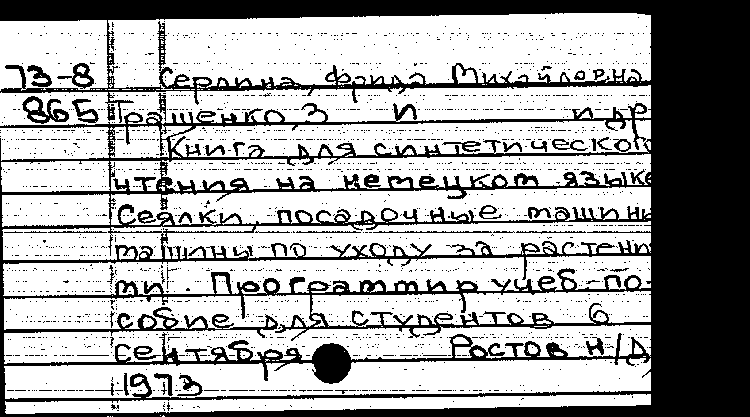 73-8 Серлина, Фрида Михайловна
865 Гращенко, З И и др
Книга для синтетическог
чтения на немецком языке
Сеялки, посадочные машины
машины по уходу за растени
ми. Программир учеб. по-
собие для студентов 6
сентября Ростов н/Д
1973